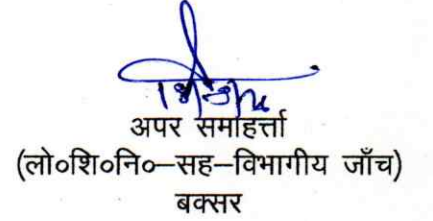 अपर समाहर्त्ता
(लो०शि०नि०–सह–विभागीय जाँच)
बक्सर